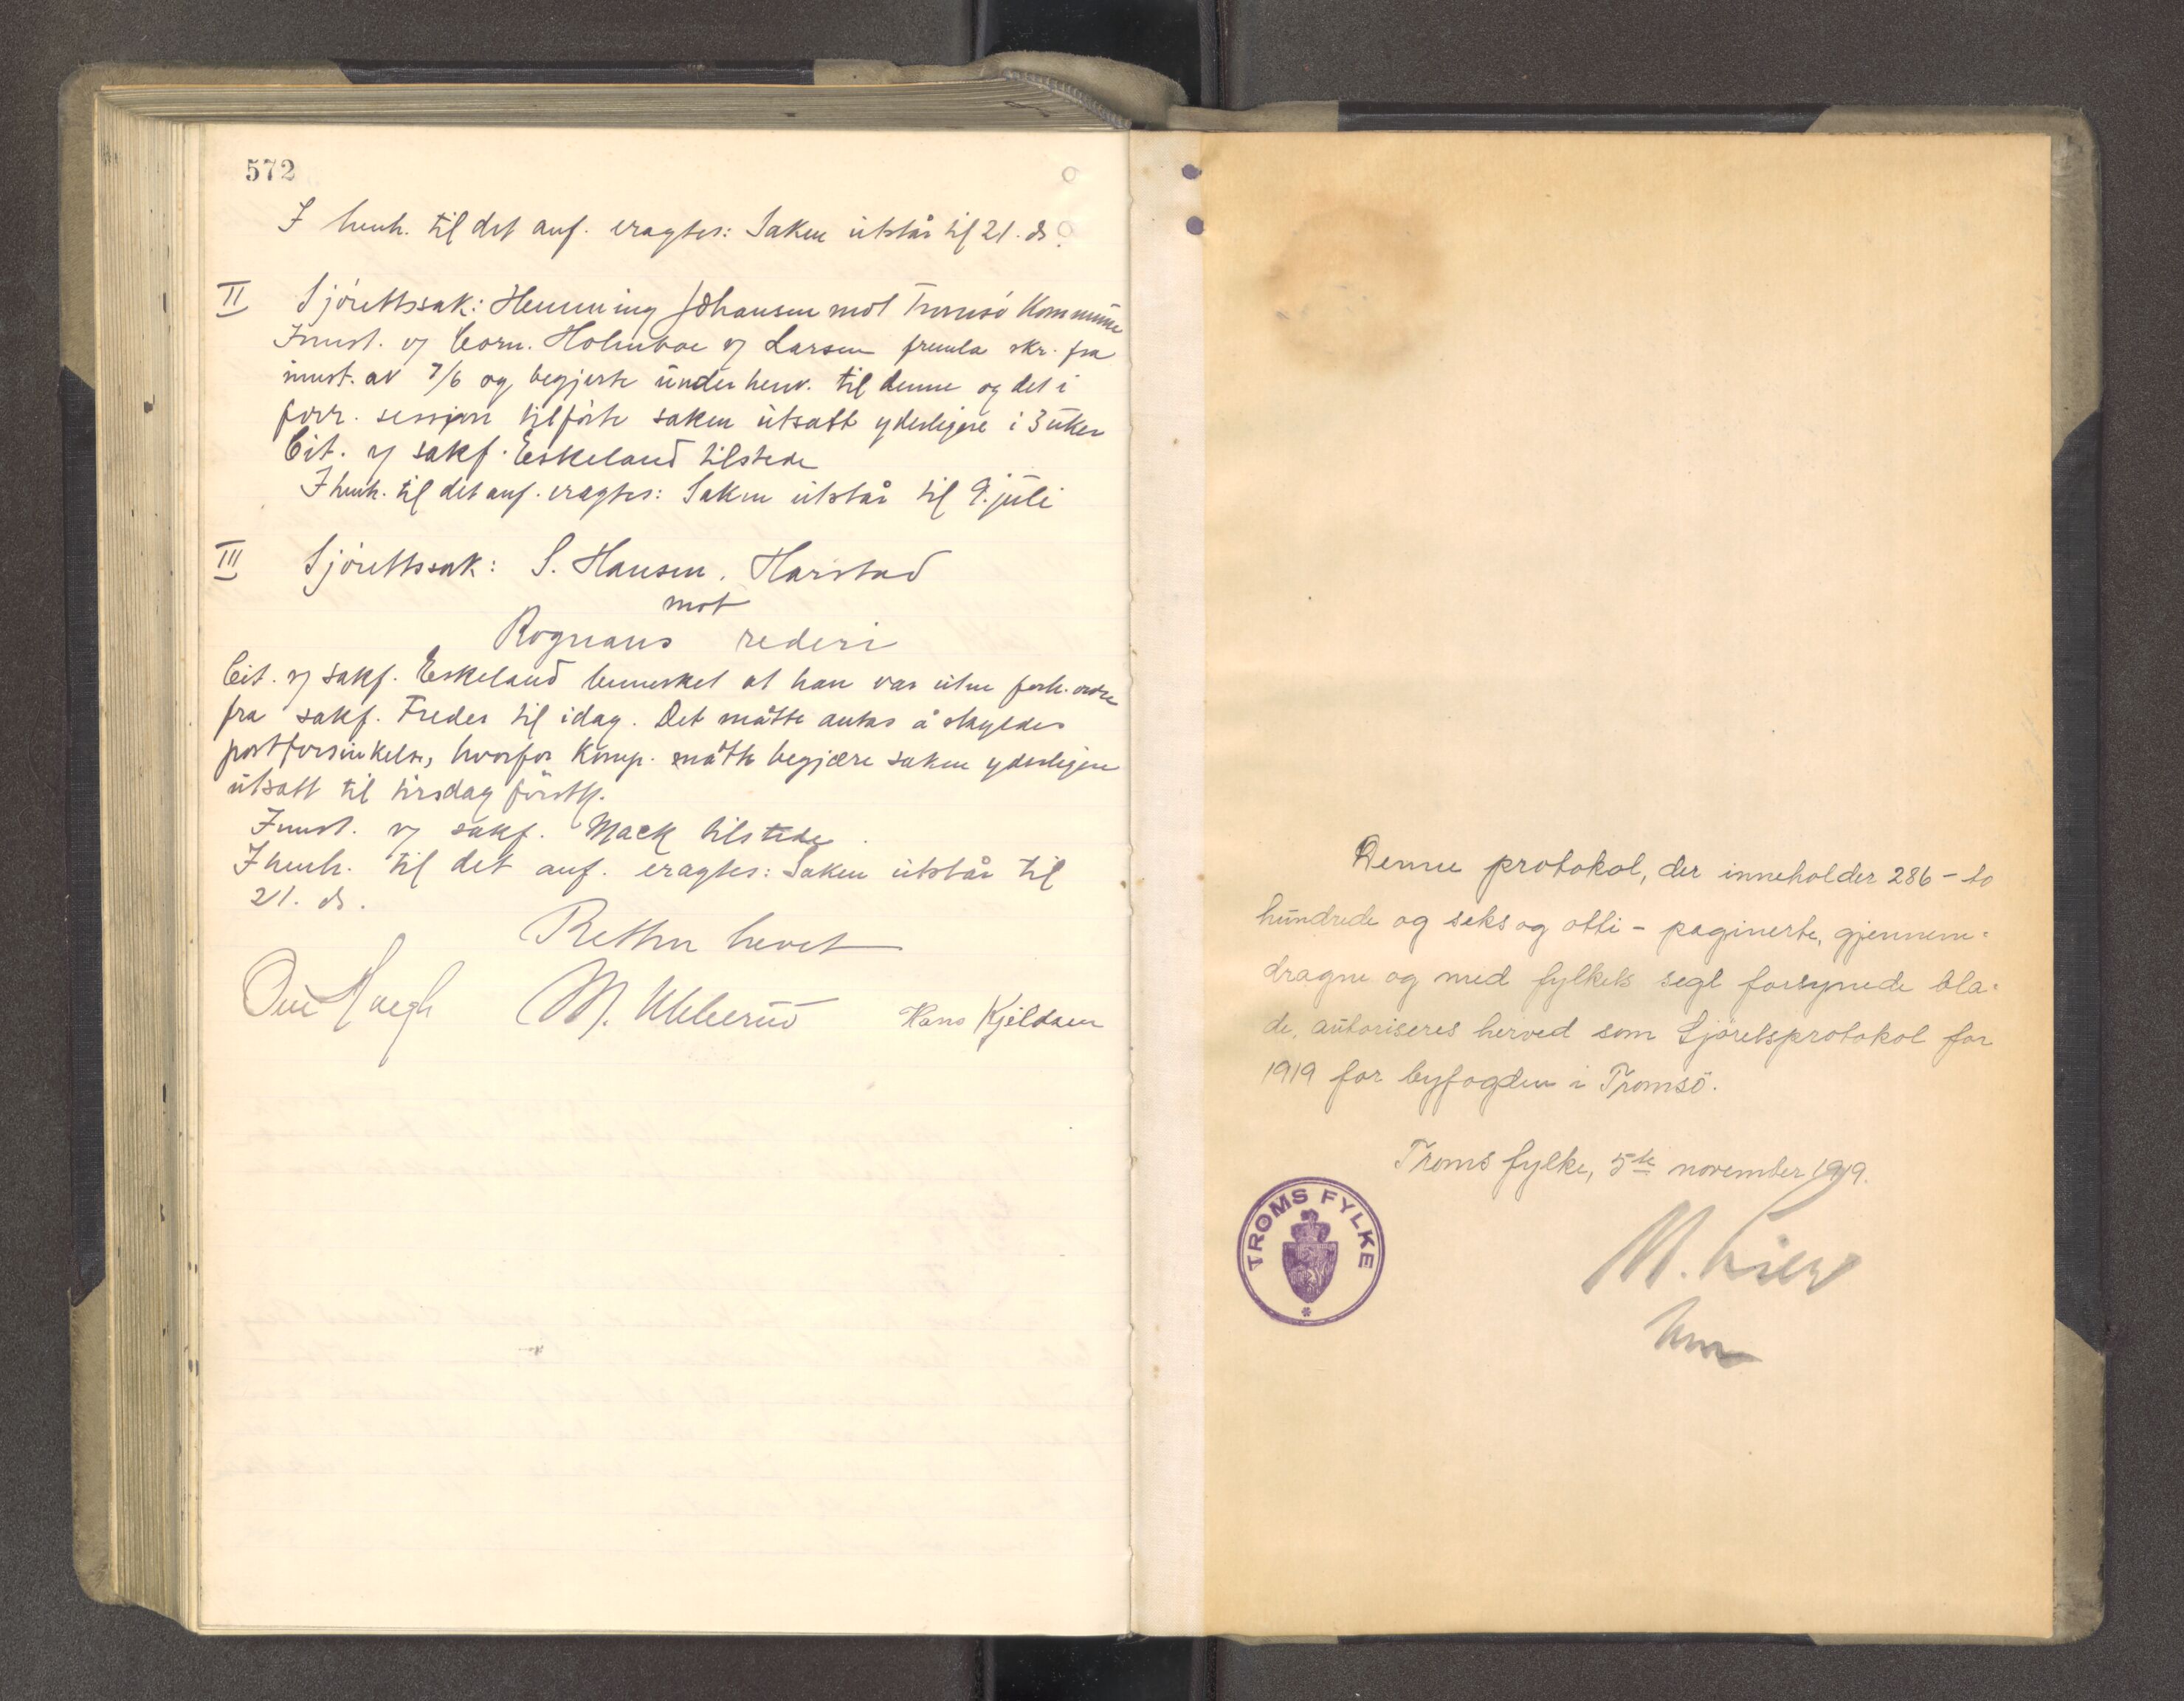 572
I henh. til det anf. eragtes: Saken utstår til 21. ds.
II Sjørettssak: Henning Johansen mot Tromsø Kommune
Innst. v/ Corn. Holmboe v/ Larsen fremla skr. fra
innst. av 7/6 og begjerte under henv. til denne og det i
forr. session tilførte saken utsatt yderligere i 3 uker
Cit. v/ sakf. Eskeland tilstede
I henh. til det anf. eragtes: Saken utstår til 9. juli
III Sjørettssak: S. Hansen, Harstad
mot
Rognans rederi
Cit. v/ sakf. Eskeland bemerket at han var uten forh. ordre
fra sakf. Freder til idag. Det måtte antas å skyldes
postforsinkelse, hvorfor komp. måtte begjære saken yderligere
utsatt til tirsdag førstk.
Innst. v/ sakf. Mack tilstede.
I henh. til det anf. eragtes: Saken utstår til
21. ds.
Retten hevet
Hans Kjeldsen
Denne protokol, der inneholder 286 - to
hundrede og seks og otti - paginerte, gjennem=
dragne og med fylkets segl forsynede bla=
de, autoriseres herved som Sjøretsprotokol for
1919 for byfogden i Tromsø.
Troms fylke, 5te november 1919.
TROMS FYLKE